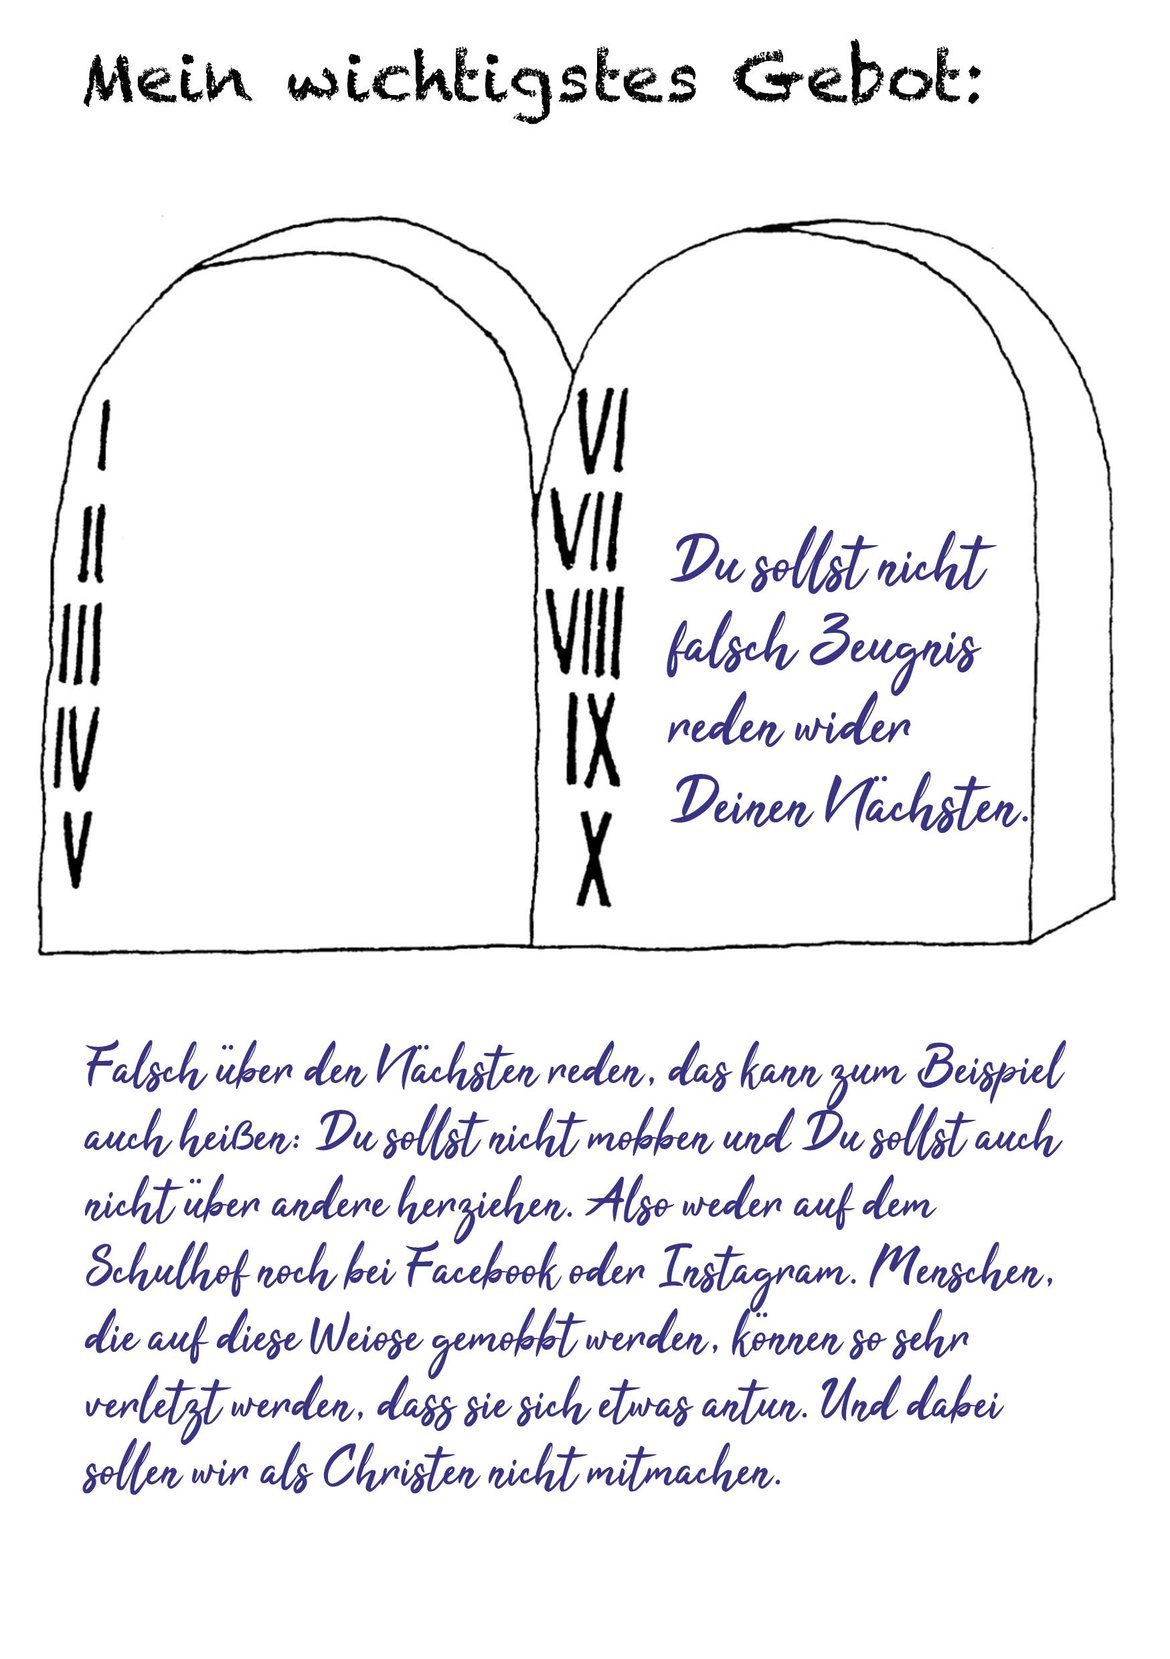 Mein wichtigstes Gebot:
I
II
III
IV
V
VI
VII
VIII
IX
X
Du sollst nicht
falsch Zeugnis
reden wider
Deinen Nächsten.
Falsch über den Nächsten reden, das kann zum Beispiel
auch heißen: Du sollst nicht mobben und Du sollst auch
nicht über andere herziehen. Also weder auf dem
Schulhof noch bei Facebook oder Instagram. Menschen,
die auf diese Weiose gemobbt werden, können so sehr
verletzt werden, dass sie sich etwas antun. Und dabei
sollen wir als Christen nicht mitmachen.